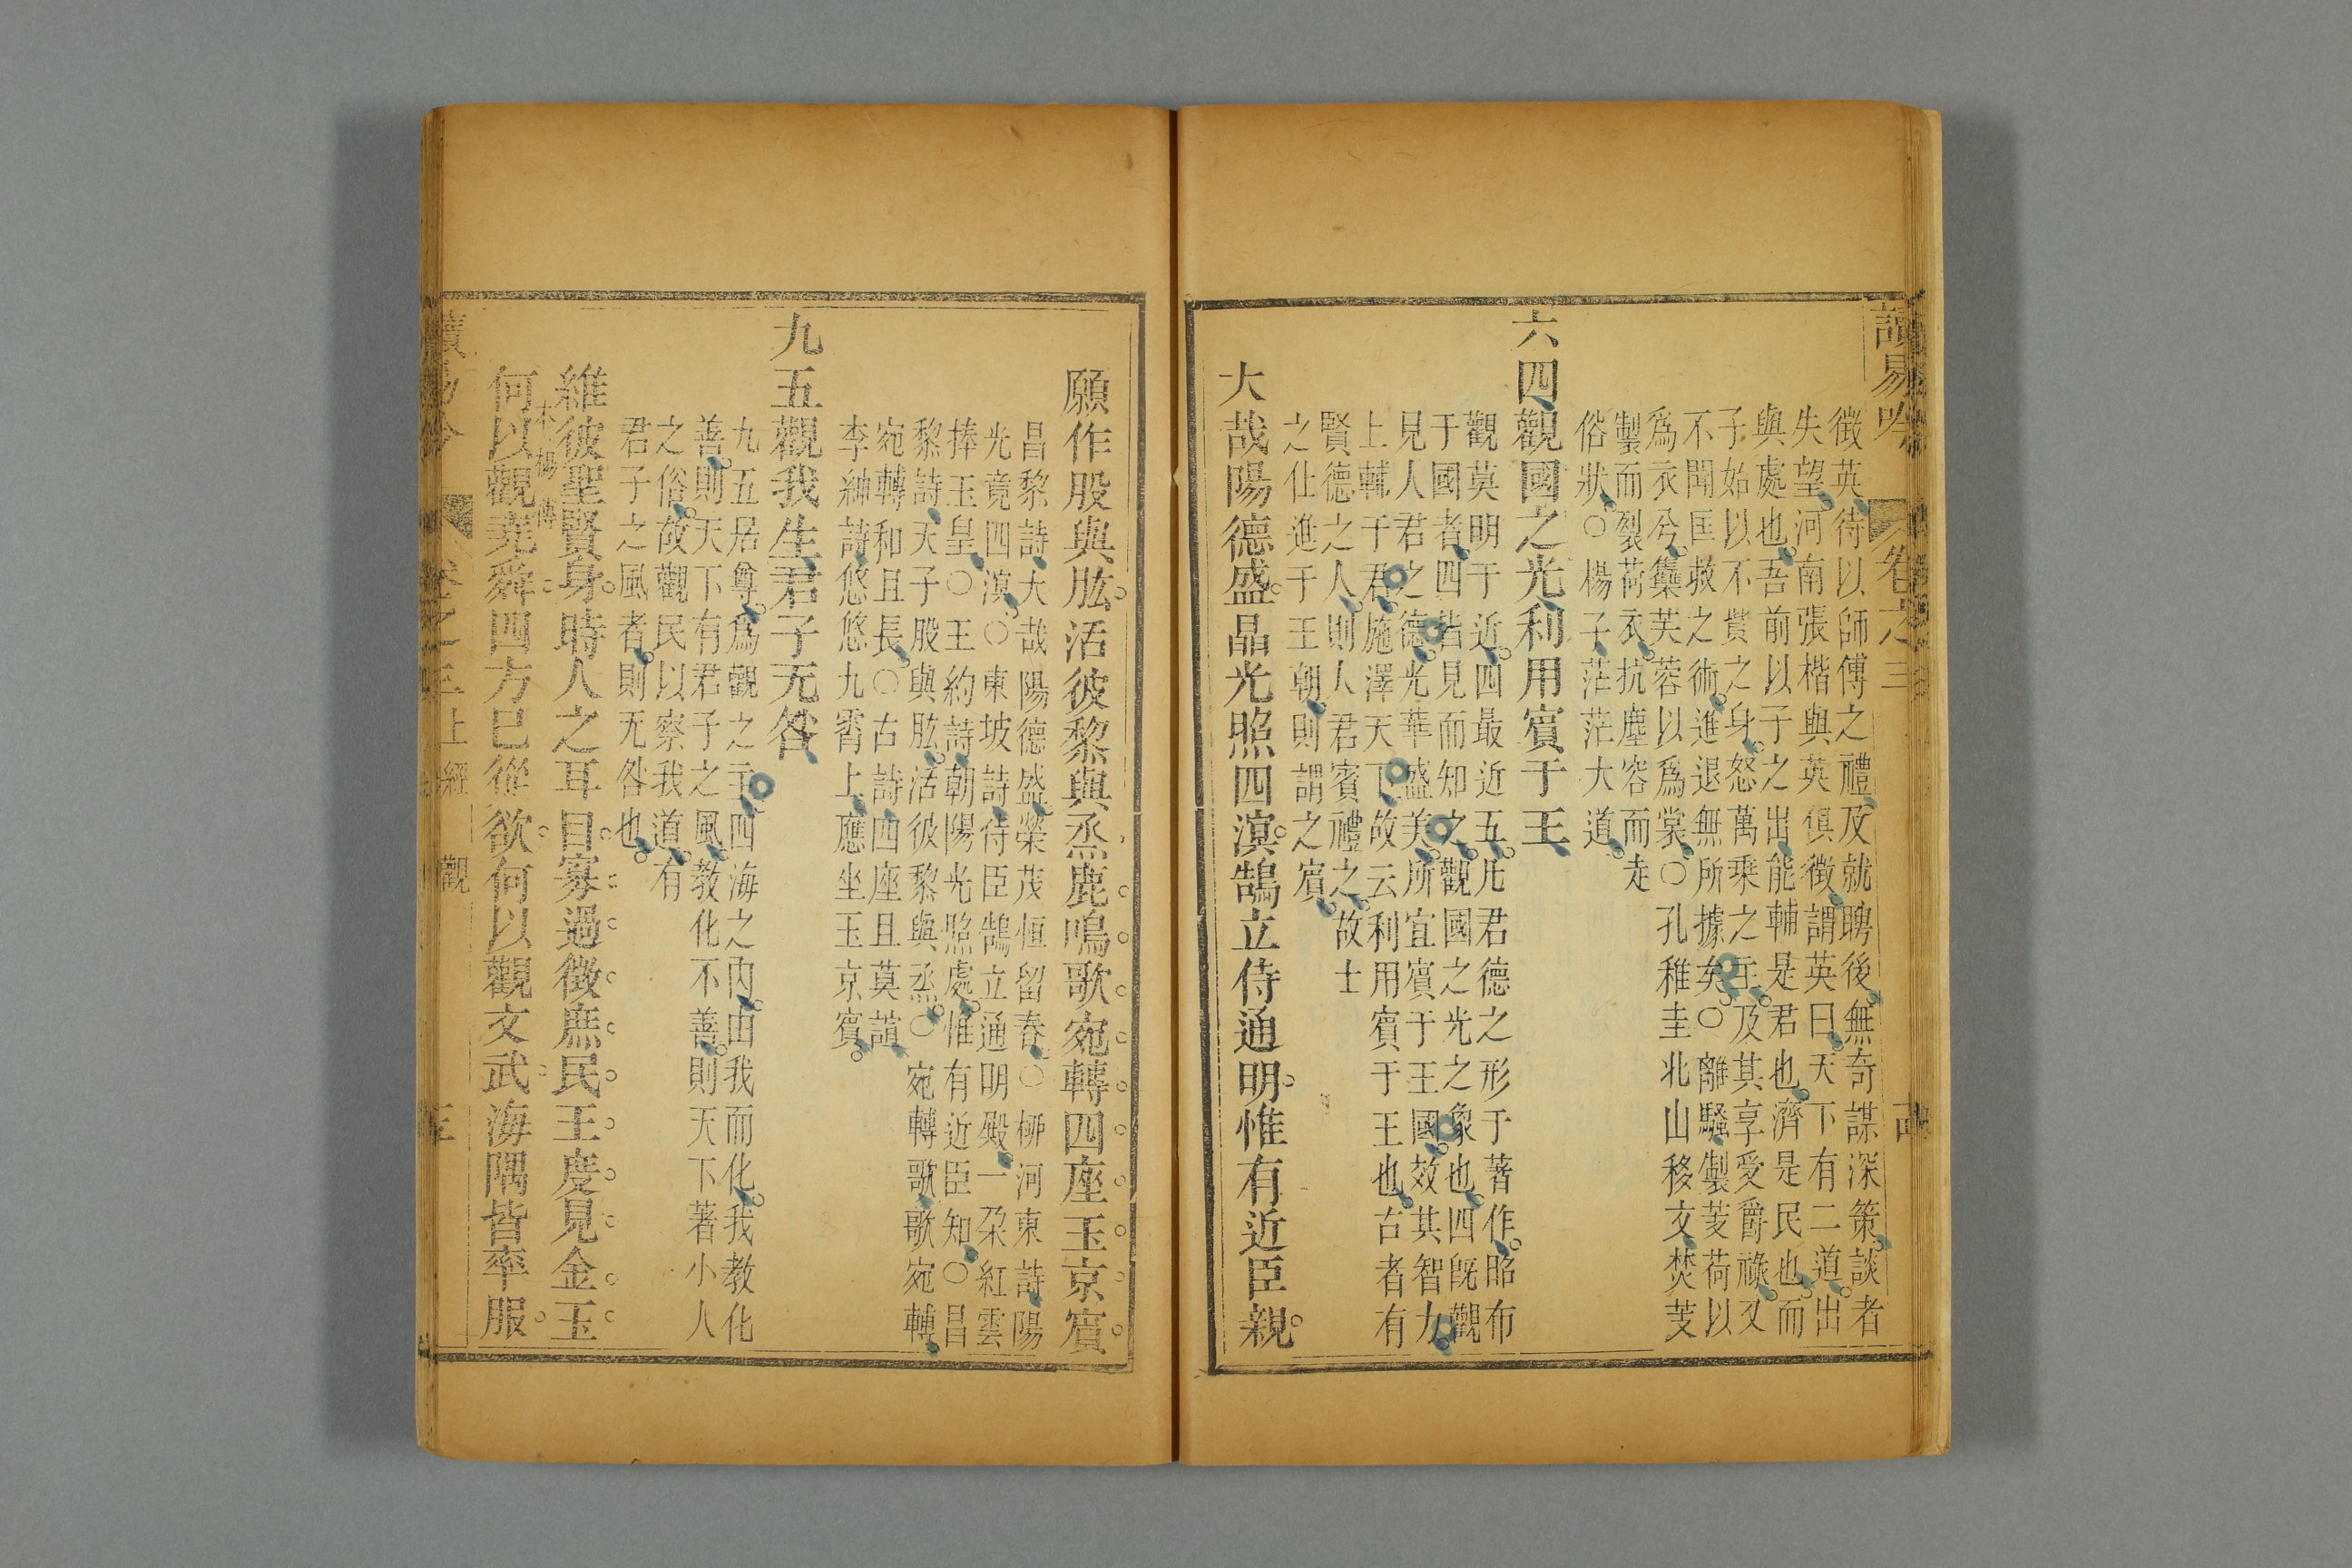 讀易吟
卷之三
徵英待以師傅之禮及就聘後無奇謀深策談者
失望河南張楷與英俱徵謂英曰天下有二道出
與處也吾前以子之出能輔是君也濟是民也而
子始以不貲之身怒萬乘之主及其享受爵祿又
不聞匡救之術進退無所據矣○離騷製芰荷以
爲衣兮集芙蓉以爲裳○孔稚圭北山移文焚芰
製而裂荷衣抗塵容而走
俗狀○楊子茫茫大道
六四觀國之光利用賓于王
觀莫明于近四最近五凡君德之形于著作昭布
于國者四皆見而知之觀國之光之象也四旣觀
見人君之德光華盛美所宜賓于王國效其智力
上輔于君施澤天下故云利用賓于王也古者有
賢德之人則人君賓禮之故士
之仕進于王朝則謂之賓
大哉陽德盛晶光照四溟鵠立侍通明惟有近臣親
願作股與肱活彼黎與烝鹿鳴歌宛轉四座玉京賓
昌黎詩大哉陽德盛榮茂恒留春○柳河東詩陽
光竟四溟○東坡詩侍臣鵠立通明殿一朶紅雲
捧玉皇○王約詩朝陽光照處惟有近臣知○昌
黎詩天子股與肱活彼黎與烝○宛轉歌歌宛轉
宛轉和且長○古詩四座且莫諠
李紳詩悠悠九霄上應坐玉京賓
九五觀我生君子无咎
九五居尊爲觀之主四海之內由我而化我教化
善則天下有君子之風教化不善則天下著小人
之俗故觀民以察我道有
君子之風者則无咎也
維彼聖賢身時人之耳目寡過徵庶民王度見金玉
何以觀堯舜四方已從欲何以觀文武海隅皆率服
上經
觀